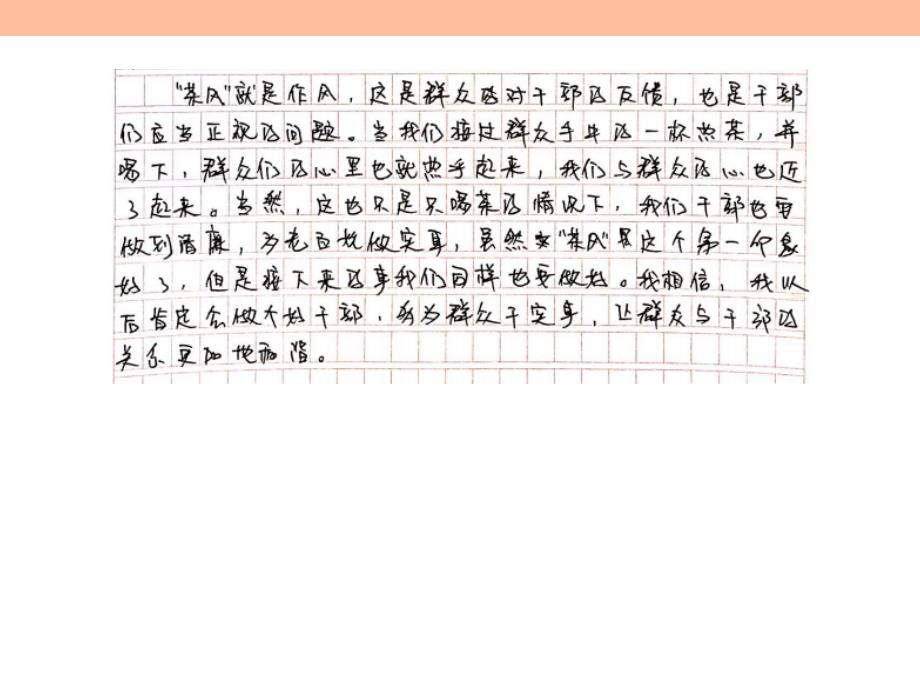 “茶风”就是作风，这是群众的对干部的反馈，也是干部
们应当正视的问题。当我们接过群众手中的一杯热茶，并
喝下，群众们的心里也就热乎起来，我们与群众的心也近
了起来。当然，这也只是只喝茶的情况下，我们干部也要
做到清廉，为老百姓做实事，虽然“茶风”是这个第一印象
好了，但是接下来的事我们同样也要做好。我相信，我以
后肯定会做个好干部，多为群众干实事，让群众与干部的
关系更加地和谐。